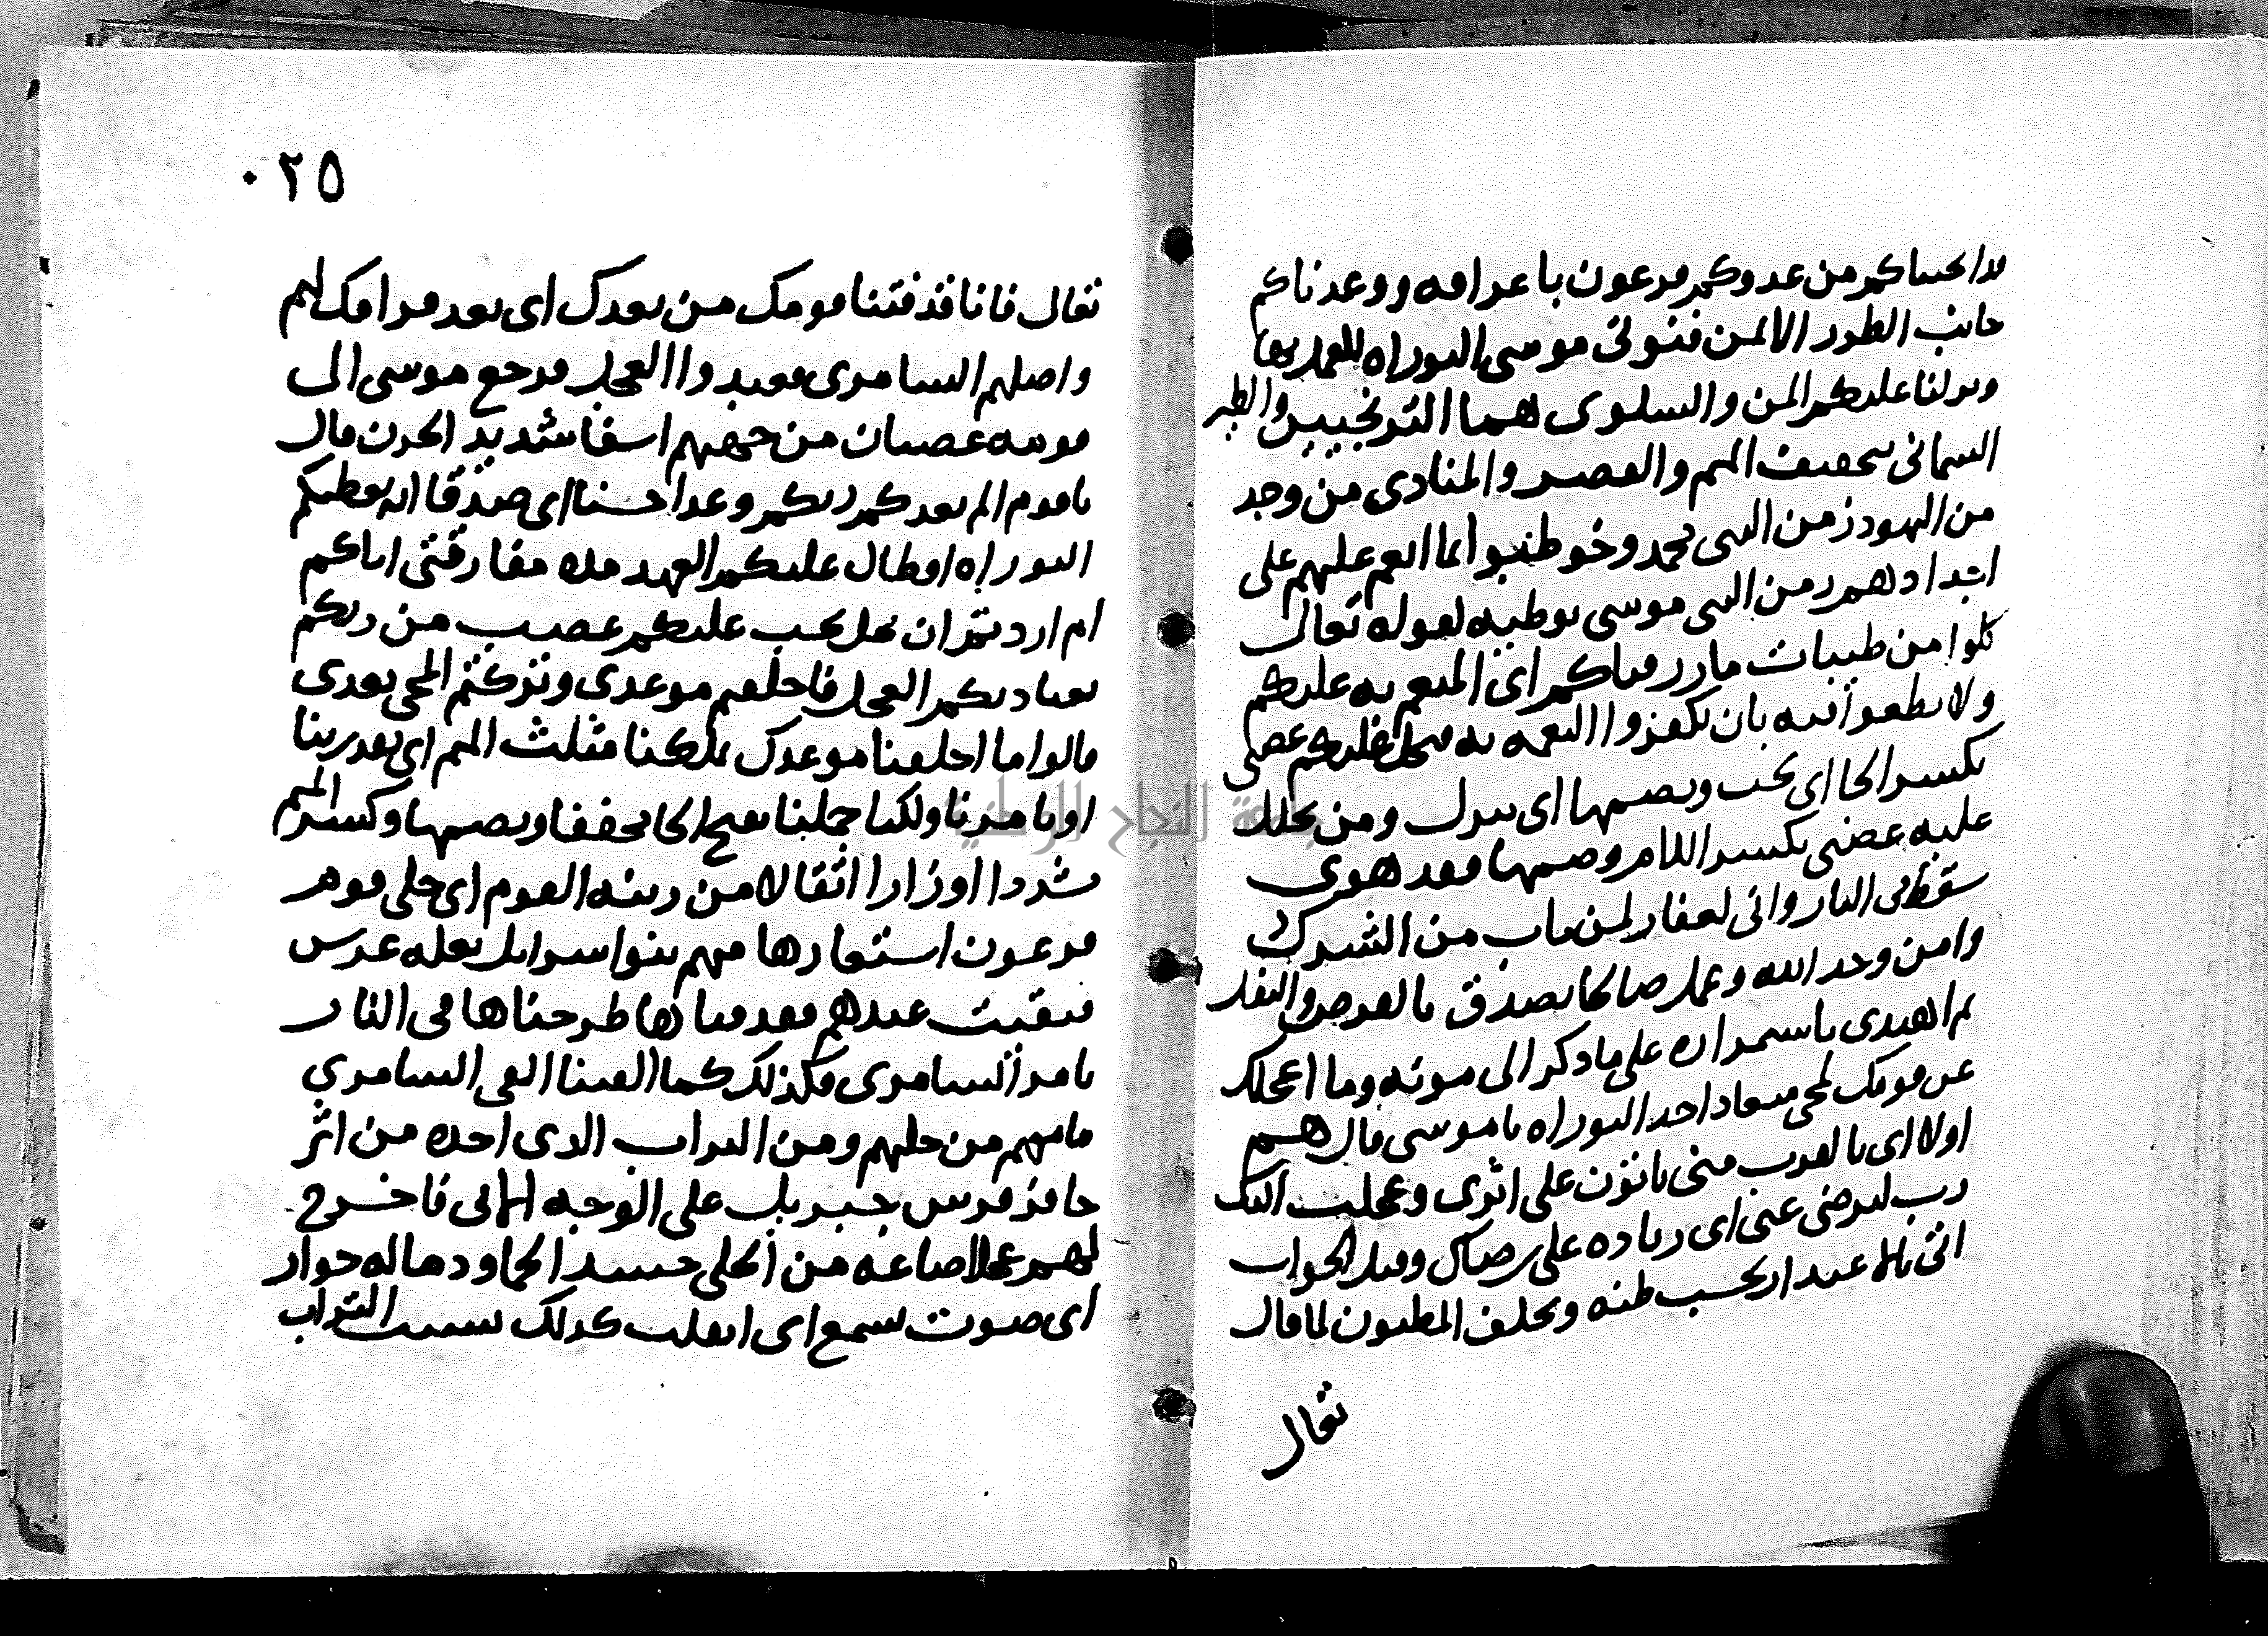 قد انجيناكم من عدوكم فرعون باغراقه وواعدناكم
جانب الطور الايمن فنوتى موسى التوراه للعمل بها
ونزلنا عليكم المن والسلوى هما الترنجبين والطير
السمانى بتخفيف الميم والقصر والمنادى من وجد
من اليهود زمن النبى محمد وخوطبوا بما انعم عليهم على
اجدادهم زمن النبى موسى توطيه لقوله تعالى
كلوا من طيبات ما رزقناكم اى المنعم به عليكم
ولا تطغوا فيه بان تكفروا النعمه به فيحل عليكم غضبى
بكسر الحا اى يجب وبضمها اى ينزل ومن يحلل
عليه غضبى بكسر اللام وضمها فقد هوى
سقط فى النار وانى لغفار لمن تاب من الشرك
وامن وحد الله وعمل صالحا يصدق بالفرض والنفل
ثم اهتدى باستمراره على ما ذكر الى موته وما اعجلك
عن قومك لمجى ميعاد اخذ التوراه يا موسى قال هم
اولا اى بالقرب منى ياتون على اثرى وعجلت اليك
رب لترضى عنى اى زياده على رضاك وقبل الجواب
اتى بالاعتذار بحسب ظنه وتخلف المظنون لما قال
تعال
٠٢٥
تعال فانا قد فتنا قومك من بعدك اى بعد فراقك لهم
واضلهم السامرى فعبدوا العجل فرجع موسى الى
قومه غضبان من جهتهم اسفا شديد الحزن قال
يا قوم الم يعدكم ربكم وعدا حسنا اى صدقا انه يعطيكم
التوراه افطال عليكم العهد مده مفارقتى اياكم
ام اردتم ان يحل يجب عليكم غضب من ربكم
بعبادتكم العجل فاخلفتم موعدى وتركتم المجى بعدى
قالوا ما اخلفنا موعدك بملكنا مثلث الميم اى بقدرتنا
او بامرنا ولكنا حملنا بفتح الحا مخففا وبضمها وكسر الميم
مشددا اوزارا اثقالا من زينه القوم اى حلى قوم
فرعون استعارها منهم بنوا اسرايل بعله عرس
فبقيت عندهم فقذفناها طرحناها فى النار
بامر السامرى فكذلك كما القينا القى السامري
ما معهم من حليهم ومن التراب الذى اخذه من اثر
حافر فرس جبريل على الوجه الاتى فاخرج
لهم عجلا صاغه من الحلى جسدا لحما ودما له خوار
اى صوت يسمع اى انقلب كذلك بسبب التراب